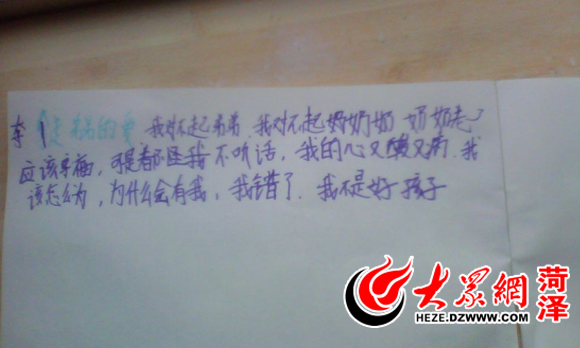 李 我对不起弟弟.我对不起妈奶奶 奶奶老了
应该幸福,可是都怪我不听话,我的心又酸又痛.我
该怎么为,为什么会有我,我错了.我不是好孩子
大众網 菏泽
HEZE.DZWWW.COM